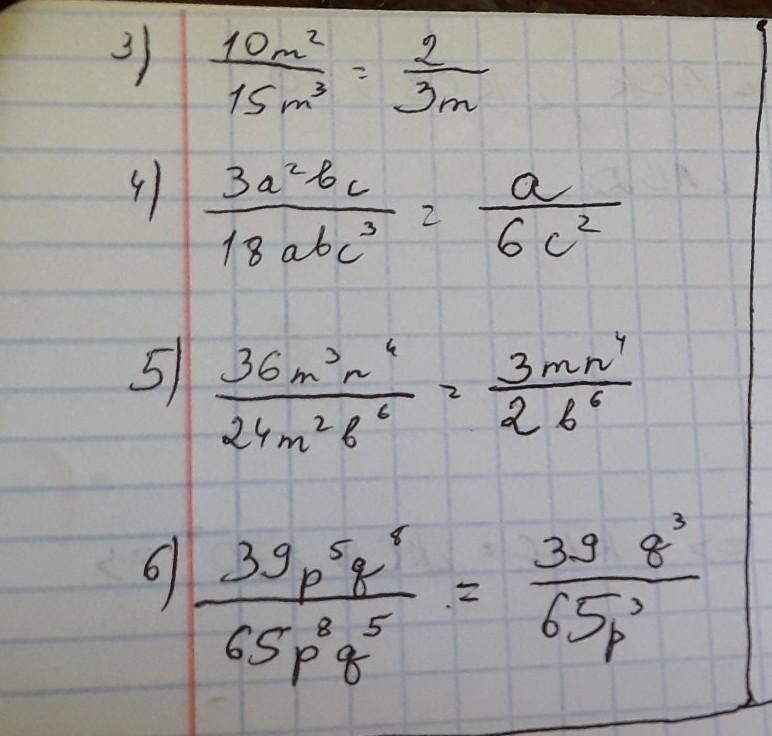 3) 10m²/15m³ = 2/3m
4) 3a²bc/18abc³ = a/6c²
5) 36m³n⁴/24m²b⁶ = 3mn⁴/2b⁶
6) 39p⁵q⁸/65p⁸q⁵ = 39q³/65p³